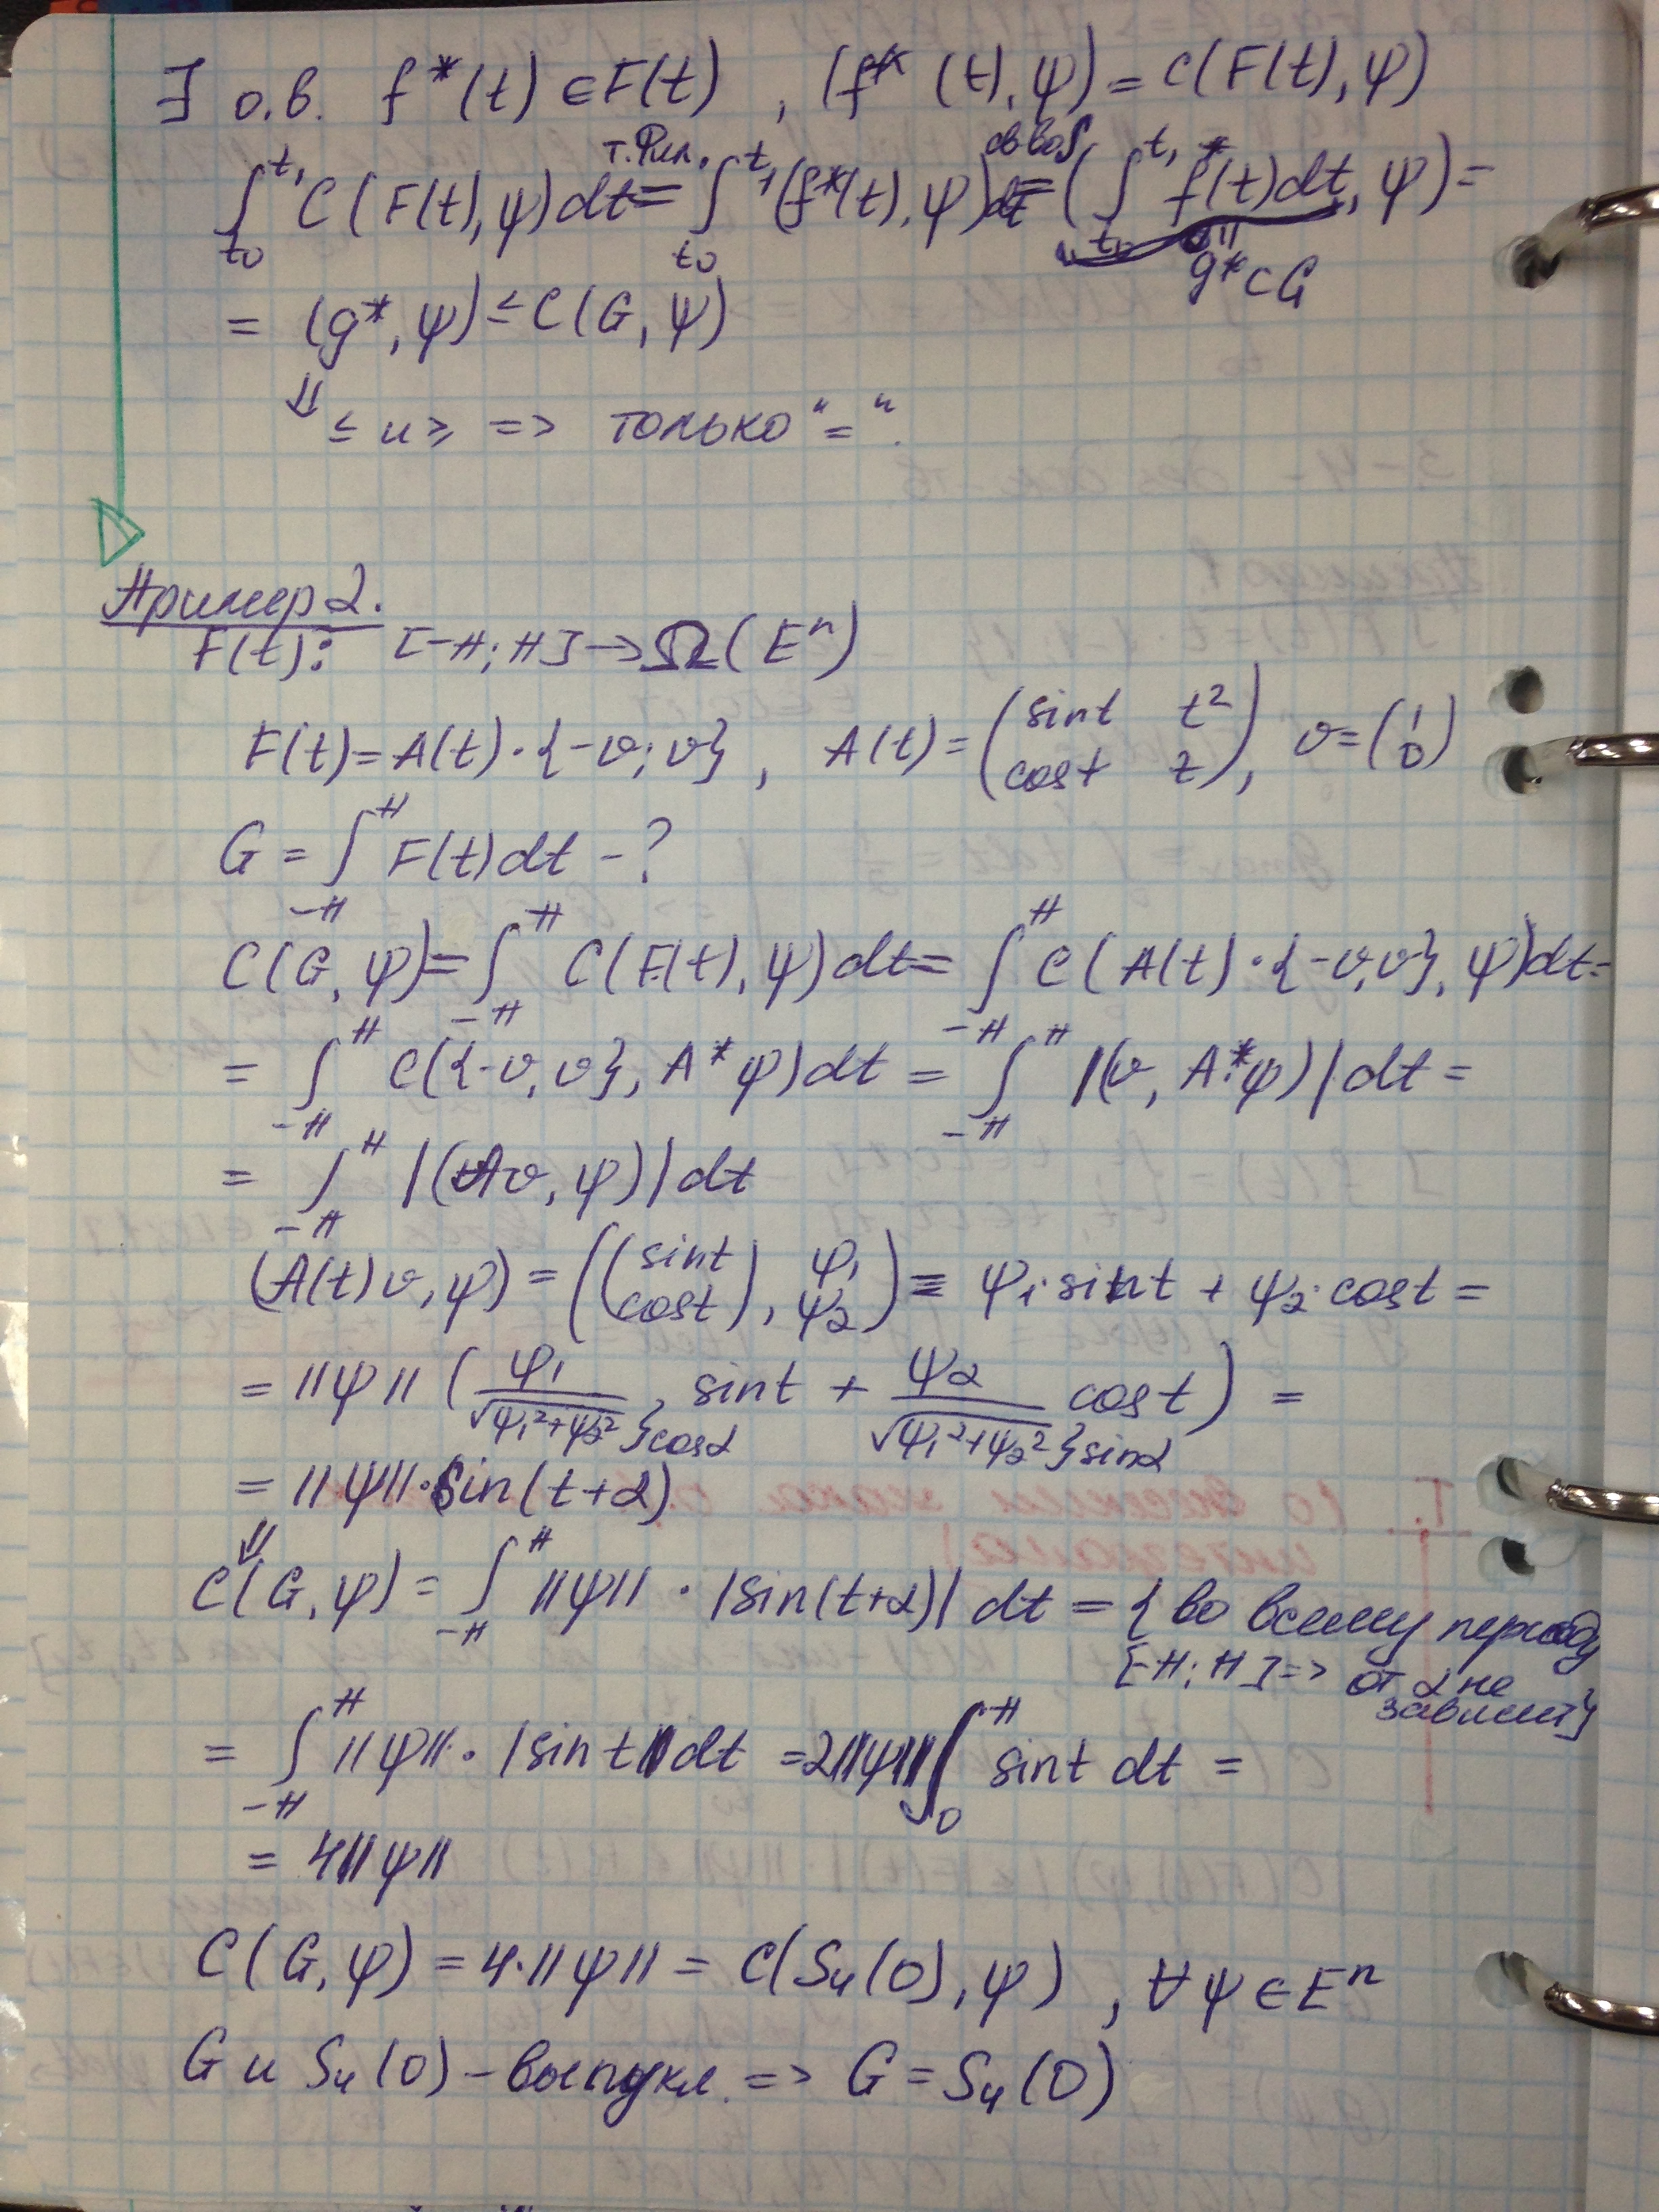 ∃ о.в. f*(t) ∈ F(t) , (f*(t), ψ) = C(F(t), ψ)
∫_{t₀}^{t₁} C(F(t), ψ)dt =^{т.Фил.} ∫_{t₀}^{t₁} (f*(t), ψ)dt = (∫_{t₀}^{t₁} f*(t)dt, ψ) =
g* ⊂ G
= (g*, ψ) ≤ C(G, ψ)
⇓
≤ и ≥ => только "=".
Пример 2.
F(t): [-π; π] → Ω(Eⁿ)
F(t) = A(t)·{-v; v} , A(t) = (sint t² / cost 2), v = (1 / 0)
G = ∫_{-π}^{π} F(t)dt - ?
C(G, ψ) = ∫_{-π}^{π} C(F(t), ψ)dt = ∫_{-π}^{π} C(A(t)·{-v, v}, ψ)dt =
= ∫_{-π}^{π} C({-v, v}, A*ψ)dt = ∫_{-π}^{π} |(v, A*ψ)|dt =
= ∫_{-π}^{π} |(Av, ψ)|dt
(A(t)v, ψ) = ((sint / cost), ψ₁ / ψ₂) = ψ₁·sint + ψ₂·cost =
= ||ψ|| (ψ₁/√(ψ₁²+ψ₂²) }cosα sint + ψ₂/√(ψ₁²+ψ₂²) }sinα cost) =
= ||ψ||·sin(t+α)
⇓
C(G, ψ) = ∫_{-π}^{π} ||ψ||·|sin(t+α)|dt = {во всему периоду
[-π; π] => от α не
зависит}
= ∫_{-π}^{π} ||ψ||·|sint|dt = 2||ψ|| ∫_{0}^{π} sint dt =
= 4||ψ||
C(G, ψ) = 4·||ψ|| = C(S₄(0), ψ) , ∀ψ ∈ Eⁿ
G и S₄(0) - выпукл. => G = S₄(0)